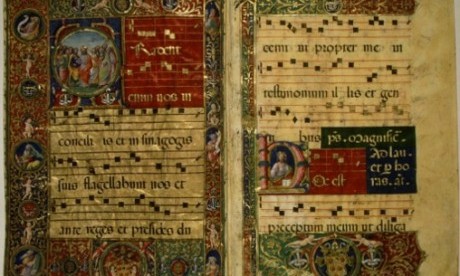 Tradent
enim vos in
conciliis et in sinagogis
suis flagellabunt vos et
ante reges et presides du
cemini propter me in
testimonium illis et gen
tibus ps. Magnific.
Ad lau
Hoc est
preceptum meum ut diliga